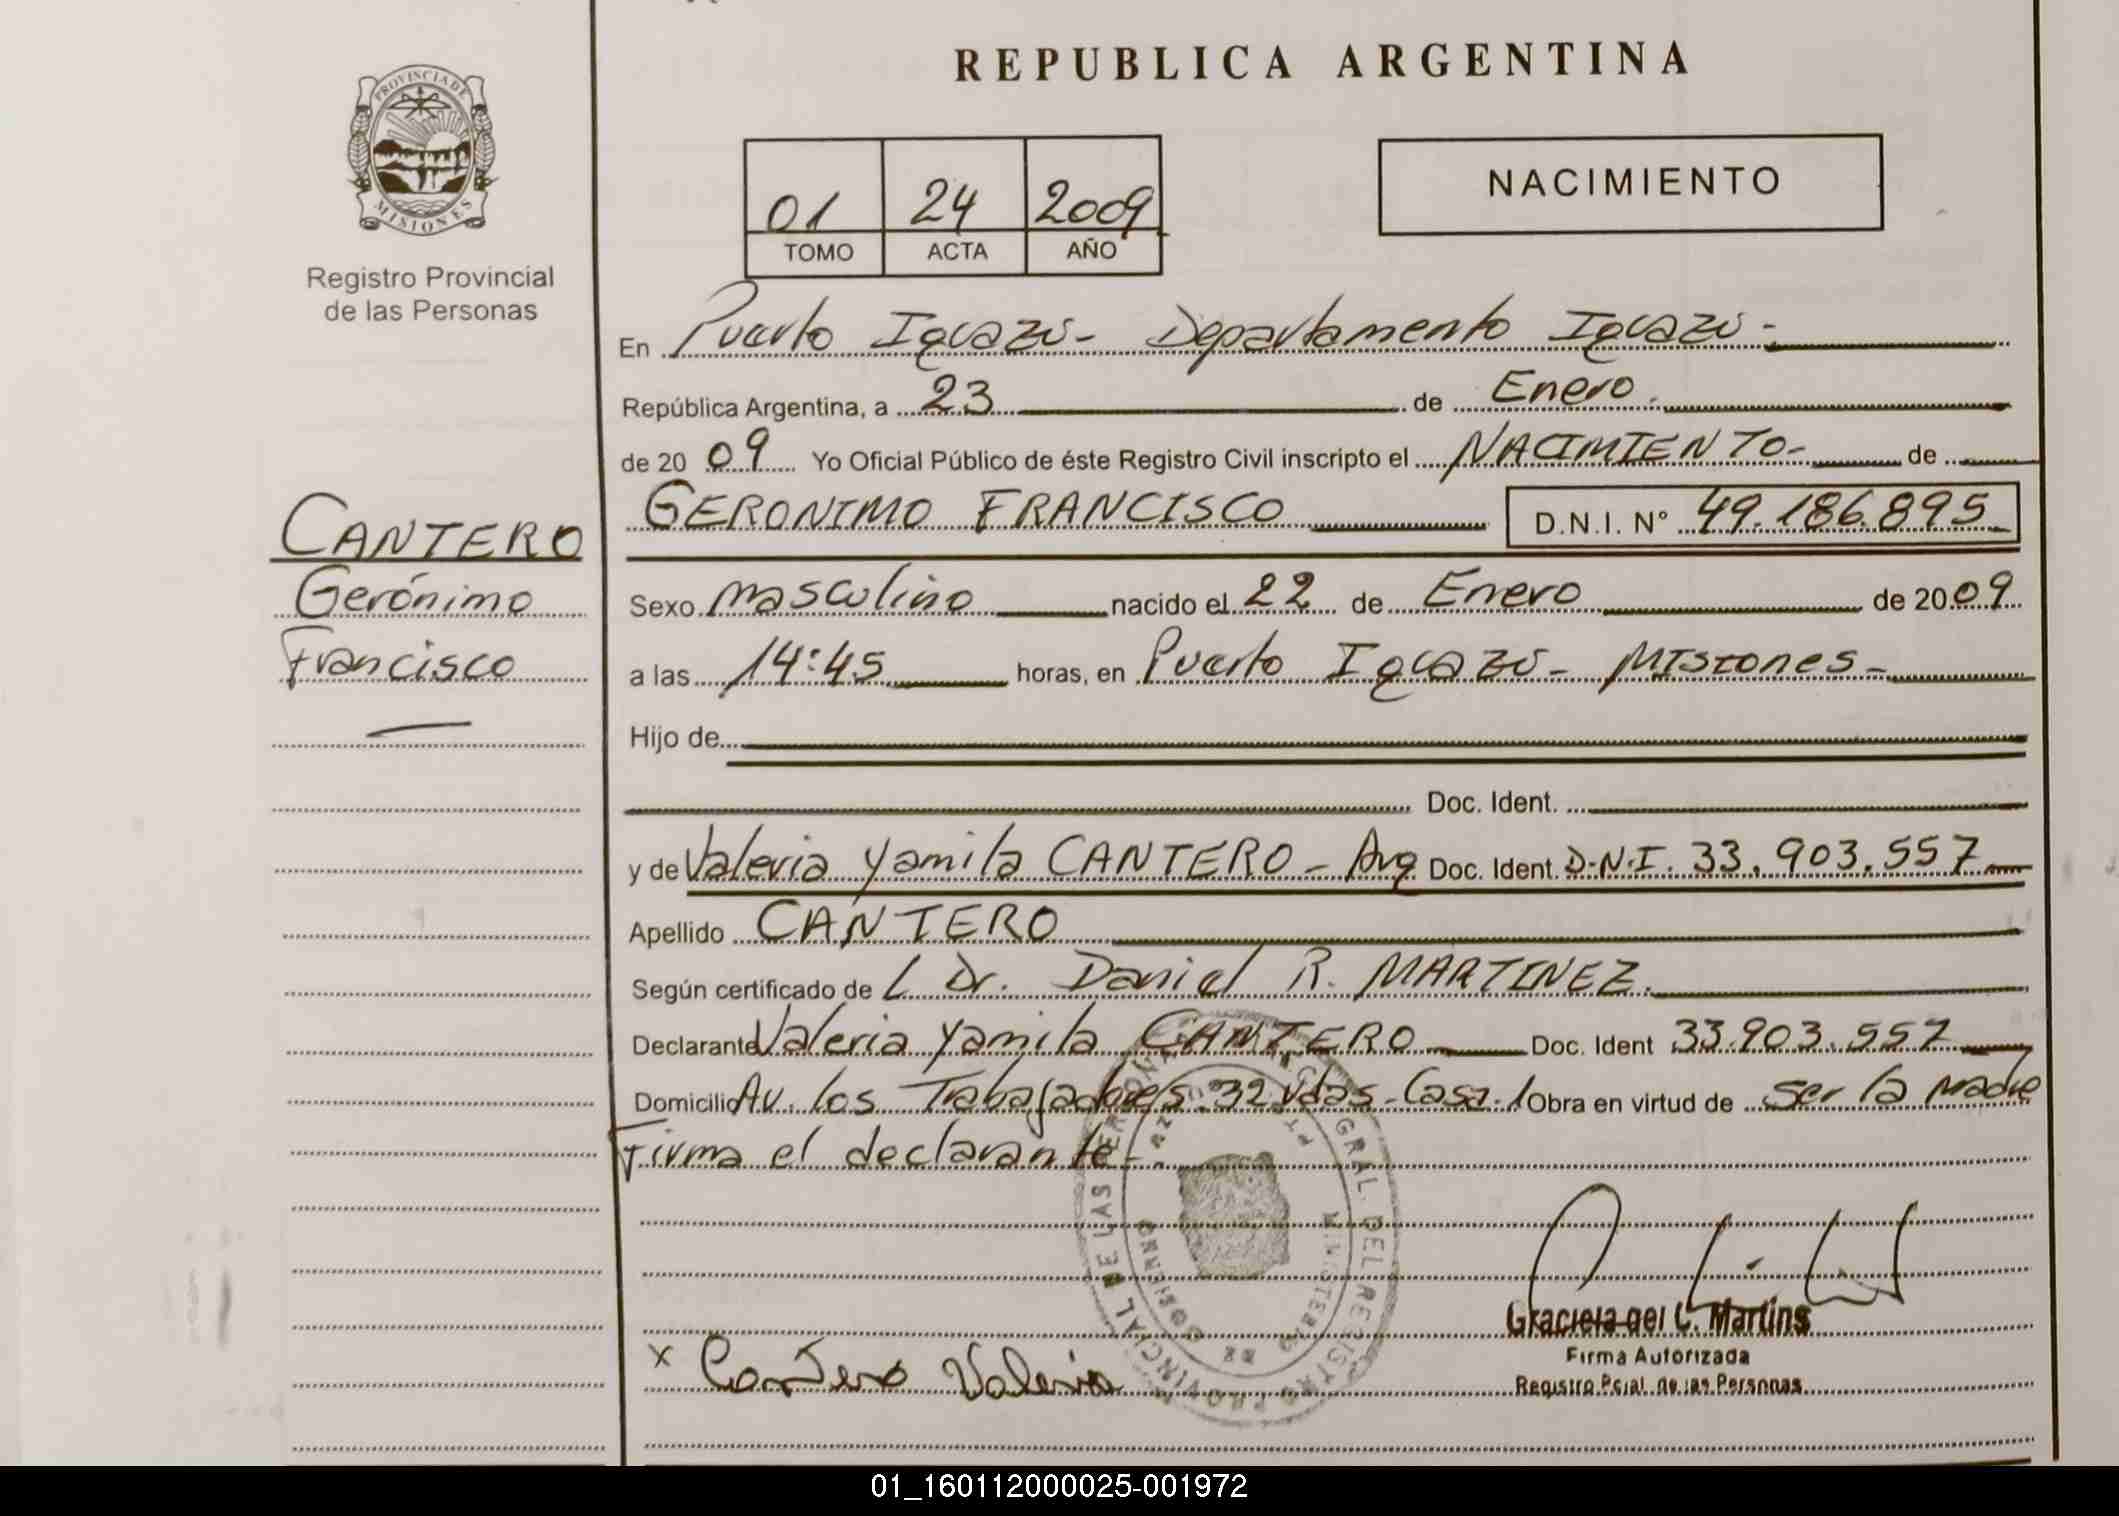 REPUBLICA ARGENTINA
PROVINCIA DE
MISIONES
Registro Provincial
de las Personas
01 24 2009
TOMO ACTA AÑO
NACIMIENTO
En Puerto Iguazú - Departamento Iguazú -
República Argentina, a 23 de Enero.
de 2009 Yo Oficial Público de éste Registro Civil inscripto el NACIMIENTO - de
GERONIMO FRANCISCO D.N.I. N° 49.186.895
CANTERO
Gerónimo
Francisco
Sexo masculino nacido el 22 de Enero de 2009
a las 14:45 horas, en Puerto Iguazú - Misiones -
Hijo de
Doc. Ident.
y de Valeria Yamila CANTERO - Arg Doc. Ident. D.N.I. 33.903.557
Apellido CANTERO
Según certificado de L Dr. Daniel R. MARTINEZ.
Declarante Valeria Yamila CANTERO Doc. Ident 33.903.557
Domicilio Av. los Trabajadores 32 vdas - Casa. 1 Obra en virtud de ser la madre
Firma el declarante -
GRAL. DEL REGISTRO PROVINCIAL DE LAS
MINISTERIO DE GOBIERNO
Graciela del C. Martins
Firma Autorizada
Registro Pcial. de las Personas
x Cantero Valeria
01_160112000025-001972